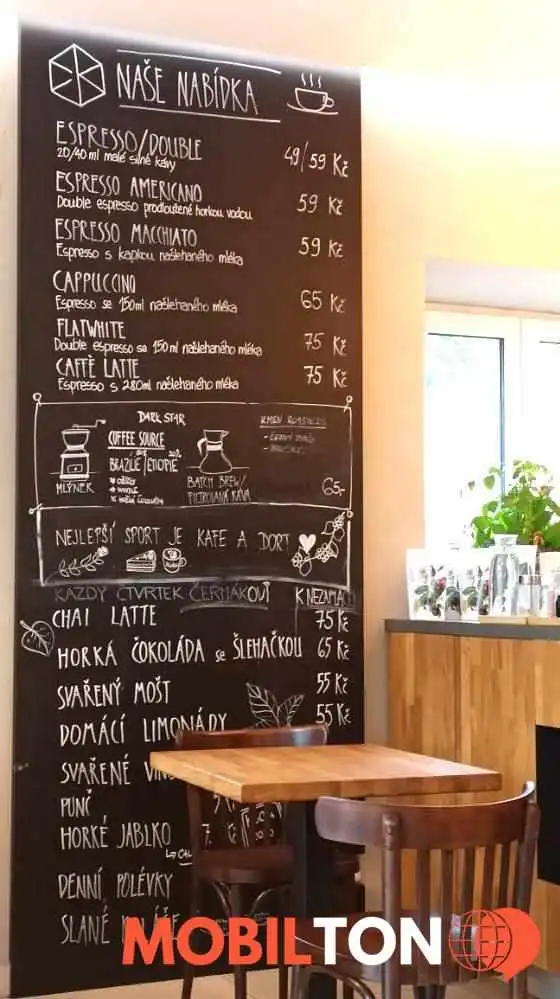 NAŠE NABÍDKA
ESPRESSO/DOUBLE 49/59 Kč
20/40 ml malé silné kávy
ESPRESSO AMERICANO 59 Kč
Double espresso prodloužené horkou vodou
ESPRESSO MACCHIATO 59 Kč
Espresso s kapkou našlehaného mléka
CAPPUCCINO 65 Kč
Espresso se 150ml našlehaného mléka
FLATWHITE 75 Kč
Double espresso se 150 ml našlehaného mléka
CAFFÈ LATTE 75 Kč
Espresso s 280ml našlehaného mléka
DARK STAR
COFFEE SOURCE
BRAZÍLIE/ETIOPIE
MLÝNEK
BATCH BREW/
FILTROVANÁ KÁVA 65,-
NEJLEPŠÍ SPORT JE KAFE A DORT
KAŽDÝ ČTVRTEK ČERŇÁKOVÝ
CHAI LATTE 75 Kč
HORKÁ ČOKOLÁDA se ŠLEHAČKOU 65 Kč
SVAŘENÝ MOŠT 55 Kč
DOMÁCÍ LIMONÁDY 55 Kč
SVAŘENÉ
PUNČ
HORKÉ JABLKO
DENNÍ POLÉVKY
SLANÉ
MOBILTON